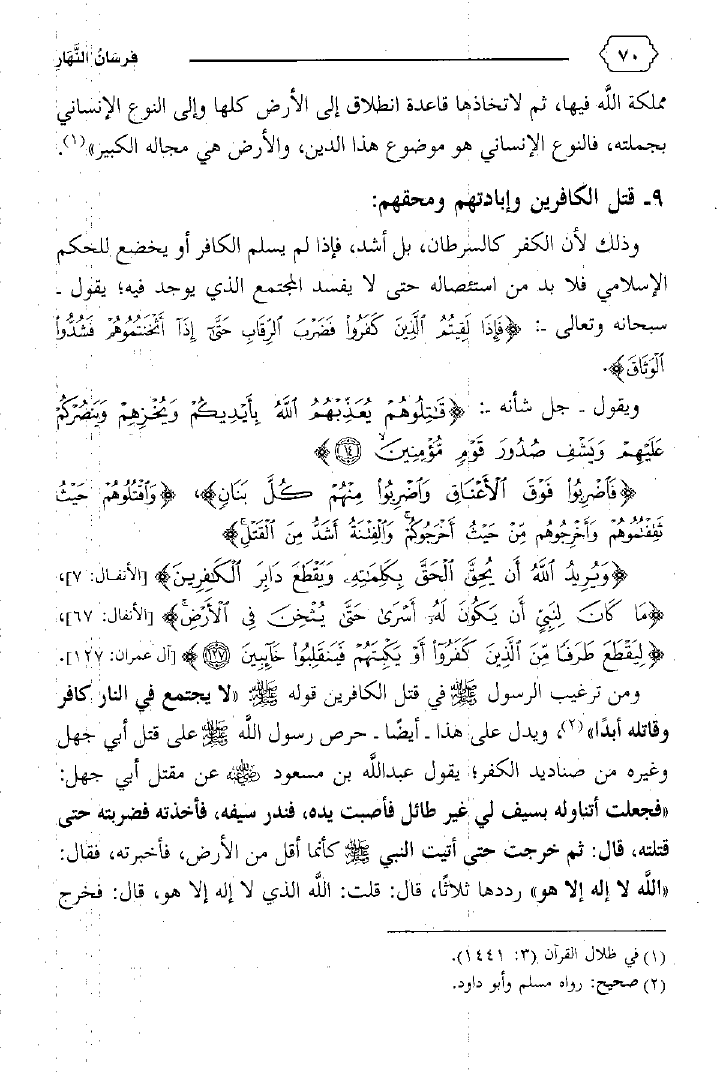 ٧٠ فرسَانُ النَّهَارِ
مملكة الله فيها، ثم لاتخاذها قاعدة انطلاق إلى الأرض كلها وإلى النوع الإنساني
بجملته، فالنوع الإنساني هو موضوع هذا الدين، والأرض هي مجاله الكبير»(١).
٩ـ قتل الكافرين وإبادتهم ومحقهم:
وذلك لأن الكفر كالسرطان، بل أشد، فإذا لم يسلم الكافر أو يخضع للحكم
الإسلامي فلا بد من استئصاله حتى لا يفسد المجتمع الذي يوجد فيه؛ يقول ـ
سبحانه وتعالى ـ: ﴿فَإِذَا لَقِيتُمُ ٱلَّذِينَ كَفَرُوا۟ فَضَرْبَ ٱلرِّقَابِ حَتَّىٰٓ إِذَآ أَثْخَنتُمُوهُمْ فَشُدُّوا۟
ٱلْوَثَاقَ﴾.
ويقول ـ جل شأنه ـ: ﴿قَٰتِلُوهُمْ يُعَذِّبْهُمُ ٱللَّهُ بِأَيْدِيكُمْ وَيُخْزِهِمْ وَيَنصُرْكُمْ
عَلَيْهِمْ وَيَشْفِ صُدُورَ قَوْمٍ مُّؤْمِنِينَ ۝١٤﴾
﴿فَٱضْرِبُوا۟ فَوْقَ ٱلْأَعْنَاقِ وَٱضْرِبُوا۟ مِنْهُمْ كُلَّ بَنَانٍ﴾، ﴿وَٱقْتُلُوهُمْ حَيْثُ
ثَقِفْتُمُوهُمْ وَأَخْرِجُوهُم مِّنْ حَيْثُ أَخْرَجُوكُمْ ۚ وَٱلْفِتْنَةُ أَشَدُّ مِنَ ٱلْقَتْلِ ۚ﴾
﴿وَيُرِيدُ ٱللَّهُ أَن يُحِقَّ ٱلْحَقَّ بِكَلِمَٰتِهِۦ وَيَقْطَعَ دَابِرَ ٱلْكَٰفِرِينَ﴾ [الأنفال: ٧]،
﴿مَا كَانَ لِنَبِيٍّ أَن يَكُونَ لَهُۥٓ أَسْرَىٰ حَتَّىٰ يُثْخِنَ فِى ٱلْأَرْضِ ۚ﴾ [الأنفال: ٦٧]،
﴿لِيَقْطَعَ طَرَفًا مِّنَ ٱلَّذِينَ كَفَرُوٓا۟ أَوْ يَكْبِتَهُمْ فَيَنقَلِبُوا۟ خَآئِبِينَ ۝١٢٧﴾ [آل عمران: ١٢٧].
ومن ترغيب الرسول ﷺ في قتل الكافرين قوله ﷺ «لا يجتمع في النار كافر
وقاتله أبدًا»(٢)، ويدل على هذا ـ أيضًا ـ حرص رسول الله ﷺ على قتل أبي جهل
وغيره من صناديد الكفر؛ يقول عبدالله بن مسعود رضي الله عنه عن مقتل أبي جهل:
«فجعلت أتناوله بسيف لي غير طائل فأصبت يده، فندر سيفه، فأخذته فضربته حتى
قتلته، قال: ثم خرجت حتى أتيت النبي ﷺ كأنما أقل من الأرض، فأخبرته، فقال:
«الله لا إله إلا هو» رددها ثلاثًا، قال: قلت: الله الذي لا إله إلا هو، قال: فخرج
(١) في ظلال القرآن (٣: ١٤٤١).
(٢) صحيح: رواه مسلم وأبو داود.